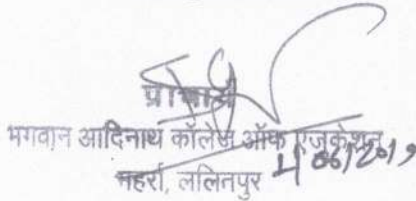 प्राचार्य
भगवान आदिनाथ कॉलेज ऑफ एजुकेशन
महर्रा, ललितपुर
4/06/2019